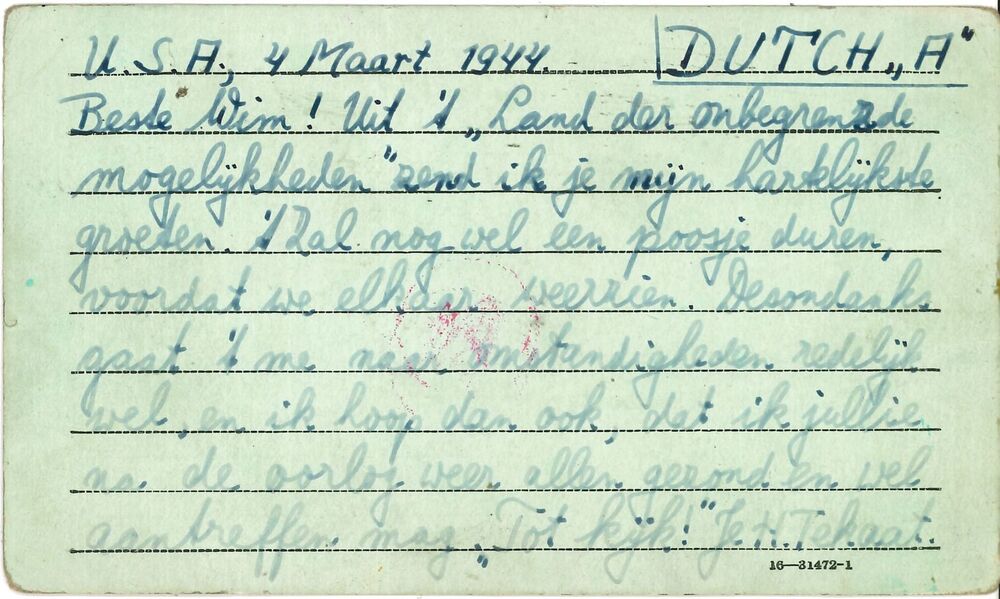 U.S.A., 4 Maart 1944. DUTCH „A"
Beste Wim! Uit 't „Land der onbegrensde
mogelijkheden" zend ik je mijn hartelijkste
groeten. 't Zal nog wel een poosje duren,
voordat we elkaar weerzien. Desondanks
gaat 't me naar omstandigheden redelijk
wel, en ik hoop dan ook, dat ik jullie
na de oorlog weer allen gezond en wel
aantreffen mag. „Tot kijk!" Je H. Tekaat.
16—31472-1